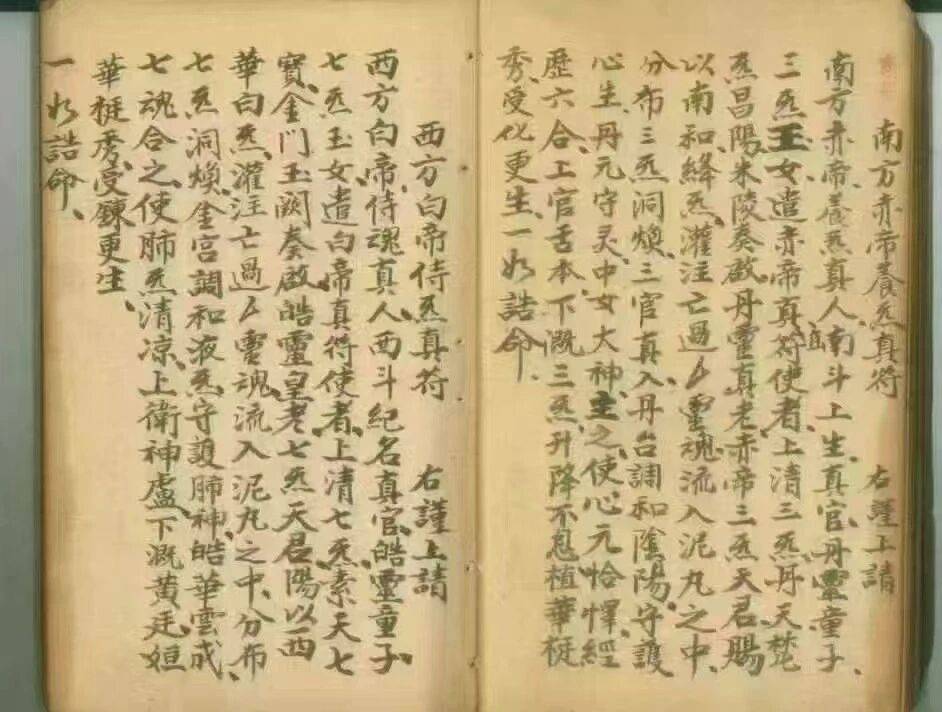 南方赤帝養炁真符 右謹上請
南方赤帝、養炁真人、南斗上生、真官、丹靈童子、
三炁玉女、遣赤帝真符使者、上清三炁、丹天梵
炁、昌陽、朱陵、奏啟丹靈真老赤帝三炁天君、賜
以南和絳炁、灌注亡過厶靈魂、流入泥丸之中、
分布三炁洞煥、三官真入丹台、調和陰陽、守護
心生、丹元守灵、中女大神、主之、使心元恰懌、經
歷六合、上官舌本、下溉三炁、升降不息、植華梃
秀、受化更生、一如誥命、
西方白帝侍炁真符 右謹上請
西方白帝、侍魂真人、西斗紀名、真官、皓靈童子、
七炁玉女、遣白帝真符使者、上清七炁、素天七
寶、金門玉闕、奏啟皓靈皇老七炁天君、賜以西
華白炁、灌注亡過厶靈魂、流入泥丸之中、分布
七炁洞煥、金宮調和、液炁守護肺神、皓華雲成、
七魂合之、使肺炁清涼、上衛神盧、下溉黃廷、姮
華梃秀、受鍊更生、
一如誥命、